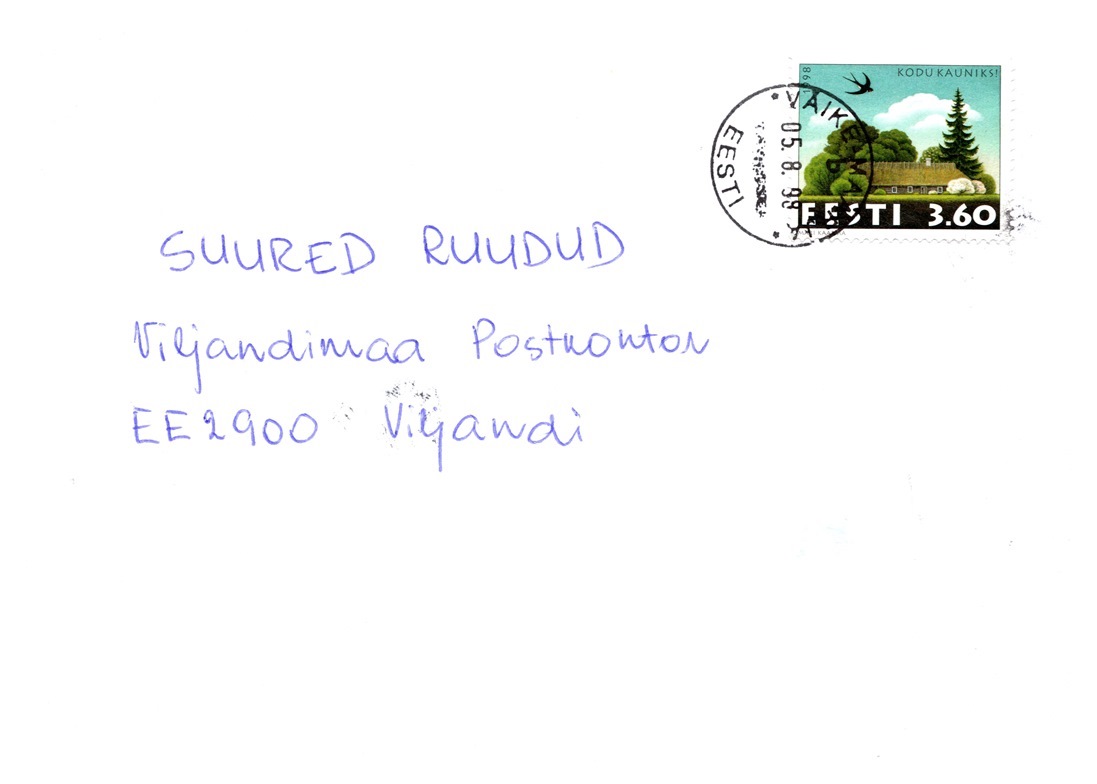 1998
KODU KAUNIKS!
EESTI 3.60
EESTI
05. 8. 98
SUURED RUUDUD
Viljandimaa Postkontor
EE2900 Viljandi